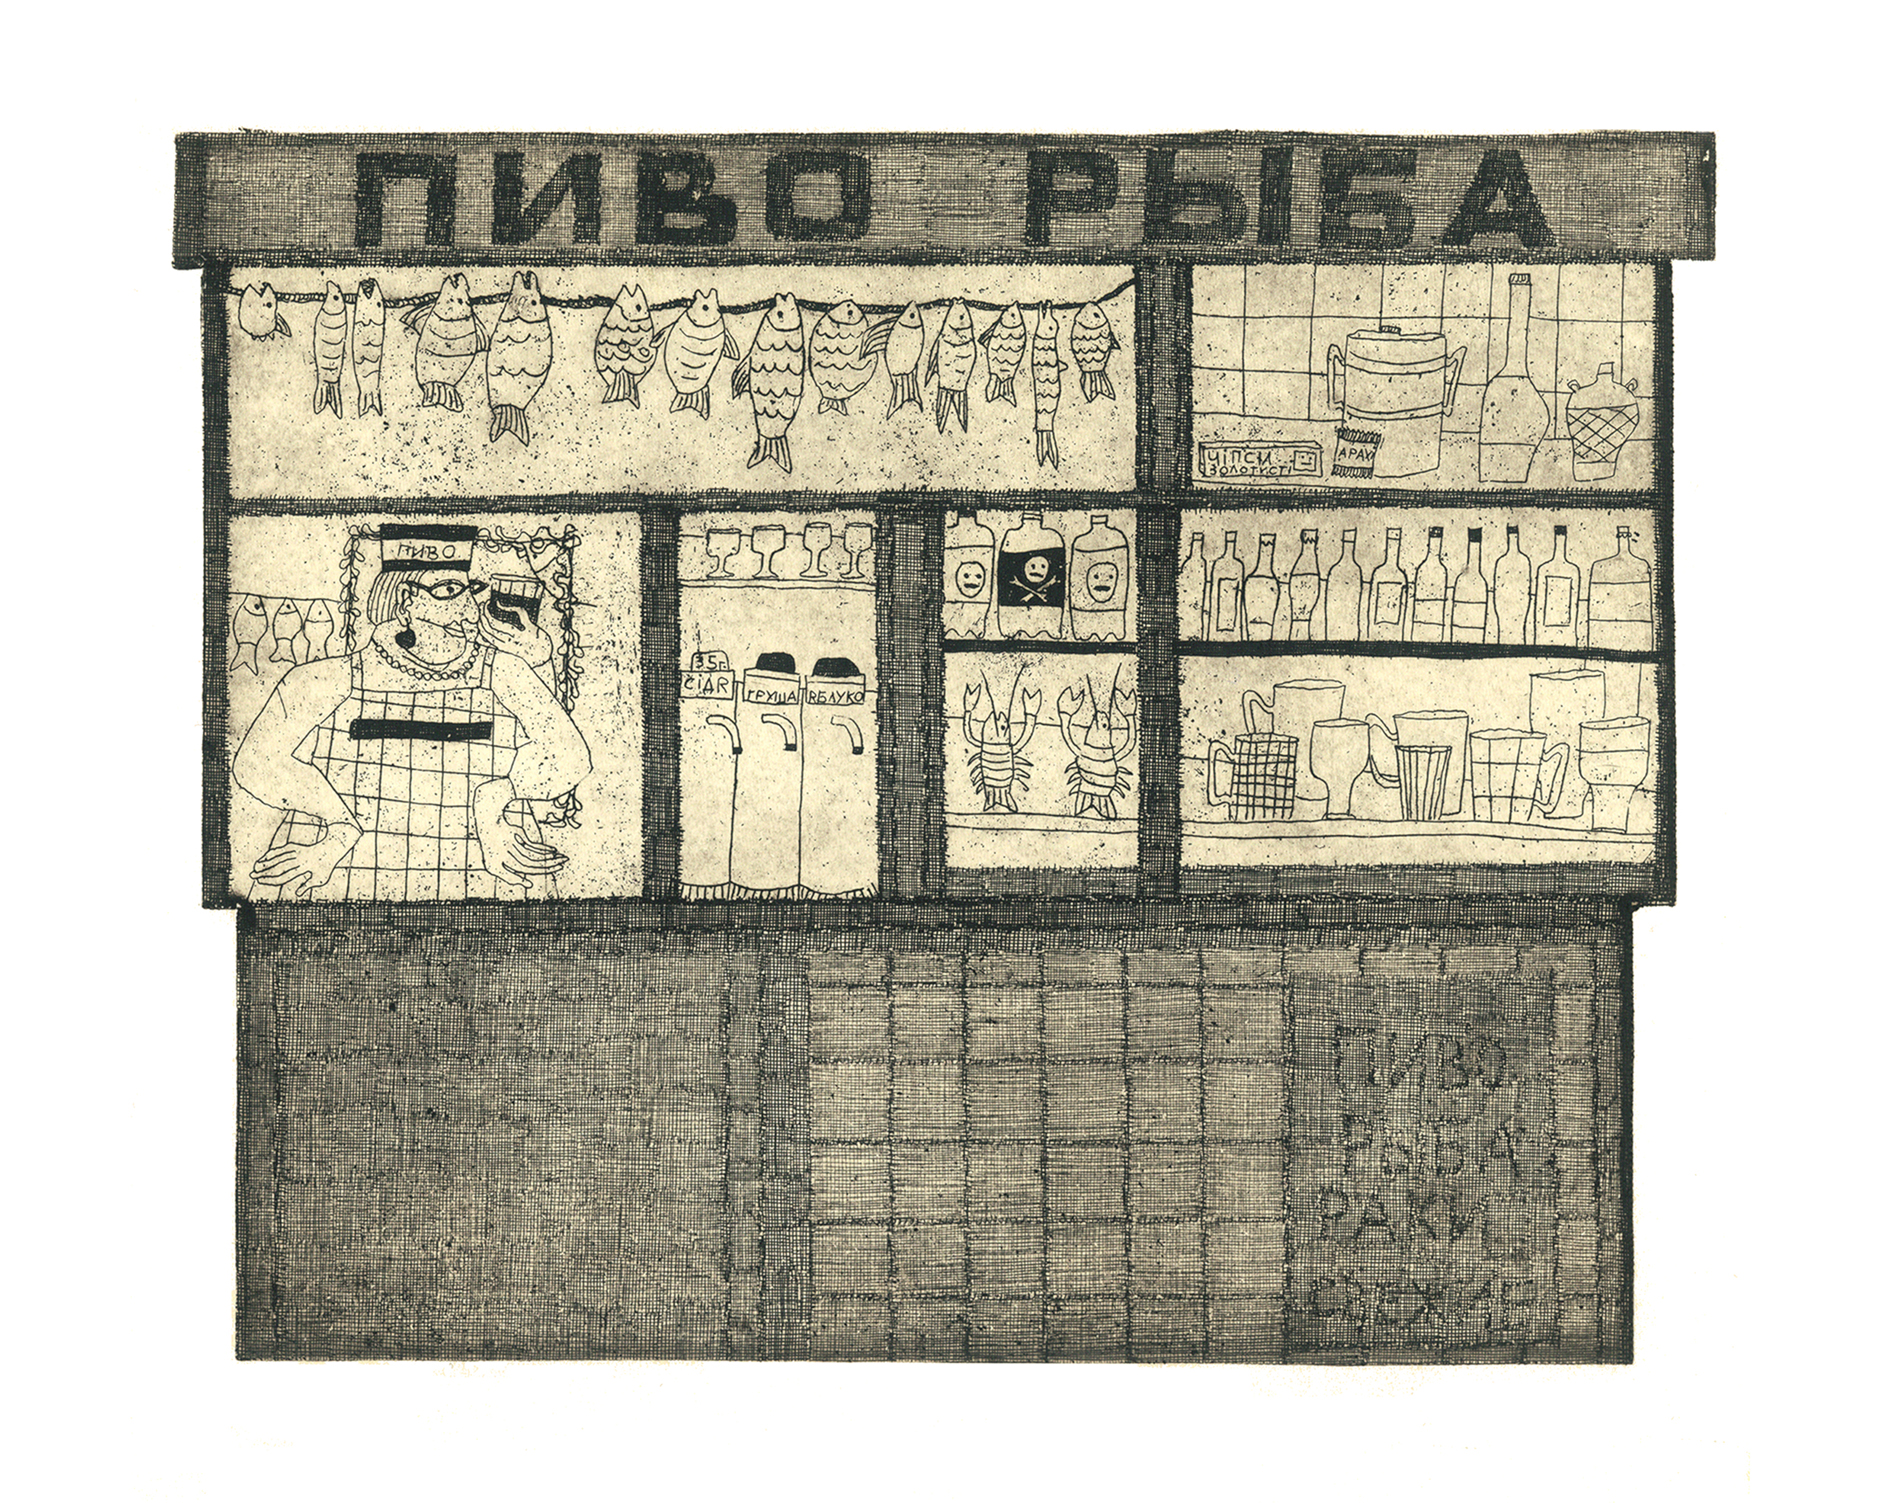 ПИВО РЫБА
ЧІПСИ
ЗОЛОТИСТІ
АРАХІ
ПИВО
35г.
СІДR
ГРУША
ЯБЛУКО
ПИВО
РЫБА
РАКИ
СВЕЖИЕ